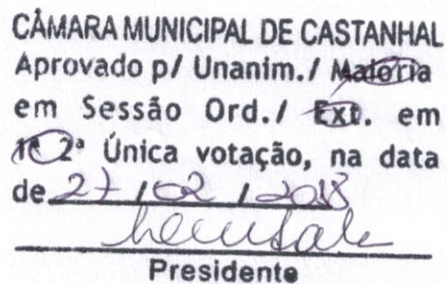 CÂMARA MUNICIPAL DE CASTANHAL
Aprovado p/ Unanim./ Maioria
em Sessão Ord./ Ext. em
1ª 2ª Única votação, na data
de 27 / 02 / 2018
Presidente